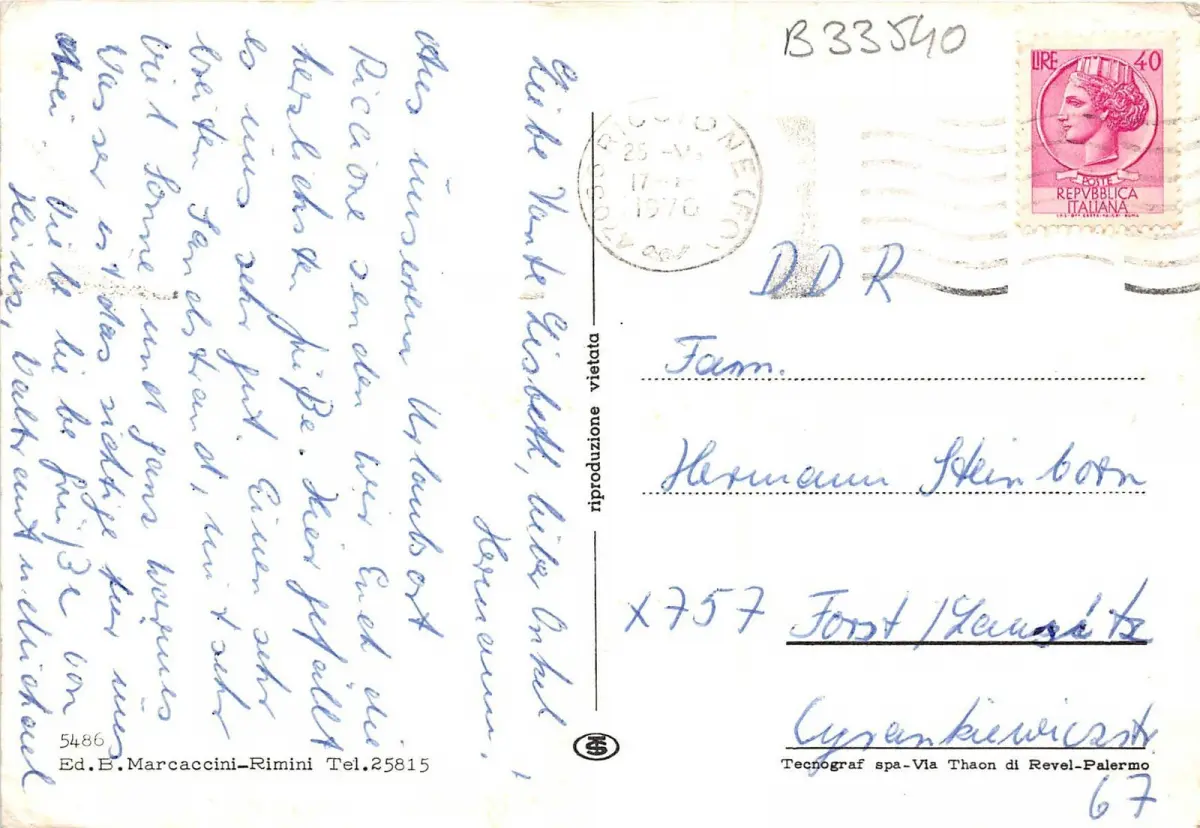 Liebe Tante Lisbeth, lieber Onkel
Hermann!
Aus unserem Urlaubsort
Riccione senden wir Euch die
herzlichsten Grüße. Hier gefällt
es uns sehr gut. Einen sehr
breiten Sandstrand, mit sehr
viel Sonne und ganz warmes
Wasser ist das richtige für uns
drei. Viele liebe Grüße von
Heinz, Waltraut u. Michael
5486
Ed. B. Marcaccini-Rimini Tel. 25815
riproduzione vietata
B33540
RICCIONE (FO)
25
17
1970
LIRE 40
POSTE
REPVBBLICA
ITALIANA
DDR
Fam.
Hermann Steinborn
X757 Forst /Lausitz
Cyrankiewiczstr
67
Tecnograf spa-Via Thaon di Revel-Palermo